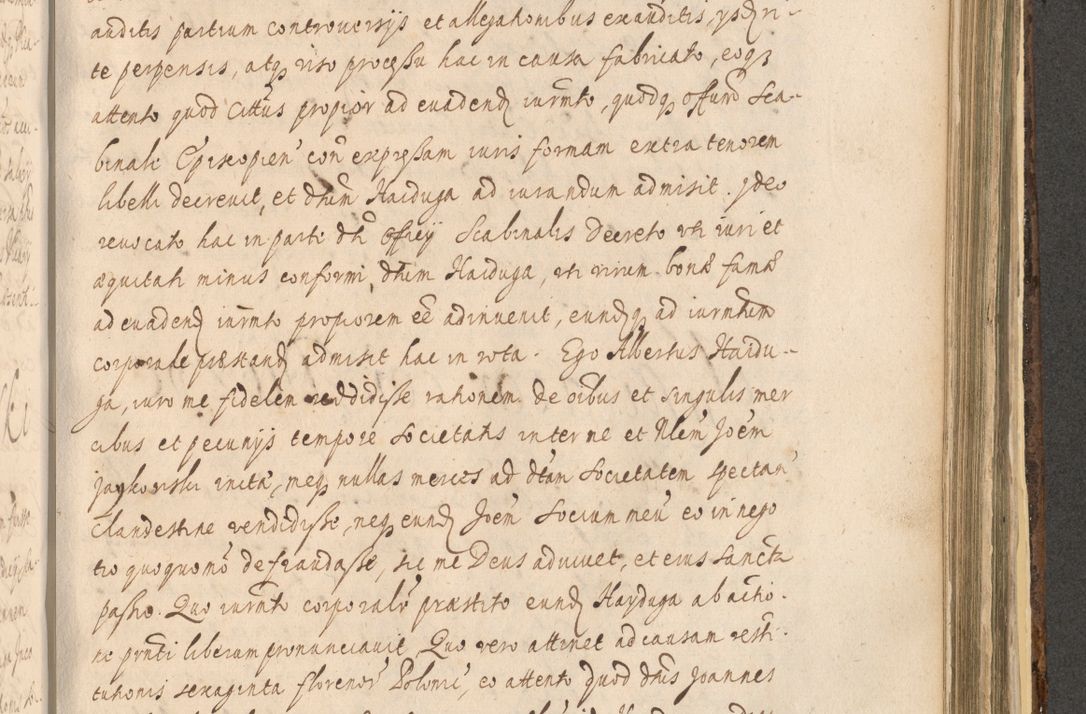 auditis partium controversijs et allegationibus exauditis, ysq ri-
te perpensis, atq viso processu hac in causa fabricato, eoq
attento quod Cittus propior ad evadend iurmto, quodq offium Sca-
binale Episcopien con expressam iuris formam extra tenorem
libelli decrevit, et dtum Haiduga ad iurandum admisit. Ideo
revocato hac in parte dti officij Scabinalis decreto uti iuri et
æquitati minus conformi, dtum Haiduga, uti virum bonæ famæ
ad evadend iurmto propiorem eē adinvenit, eundq ad iurmtum
corporale præstand admisit hac in rota. Ego Albertus Haidu-
ga, iuro me fidelem reddidisse rationem de oibus et singulis mer
cibus et pecunijs tempore societatis inter me et Nlem Joēm
Jaykowski inita, neq nullas merces ad dtam societatem spectan
clandestine vendidisse, neq eund Joēm socium meū eo in nego
tio quoquomō defraudasse, sic me Deus adiuvet, et eius sancta
passio. Quo iurmto corporalr præstito eund Hayduga ab actio-
ne prnti liberum pronunciavit, Quo vero attinet ad causam resti-
tutionis sexaginta florenor Poloni, eo attento quod dtus Joannes